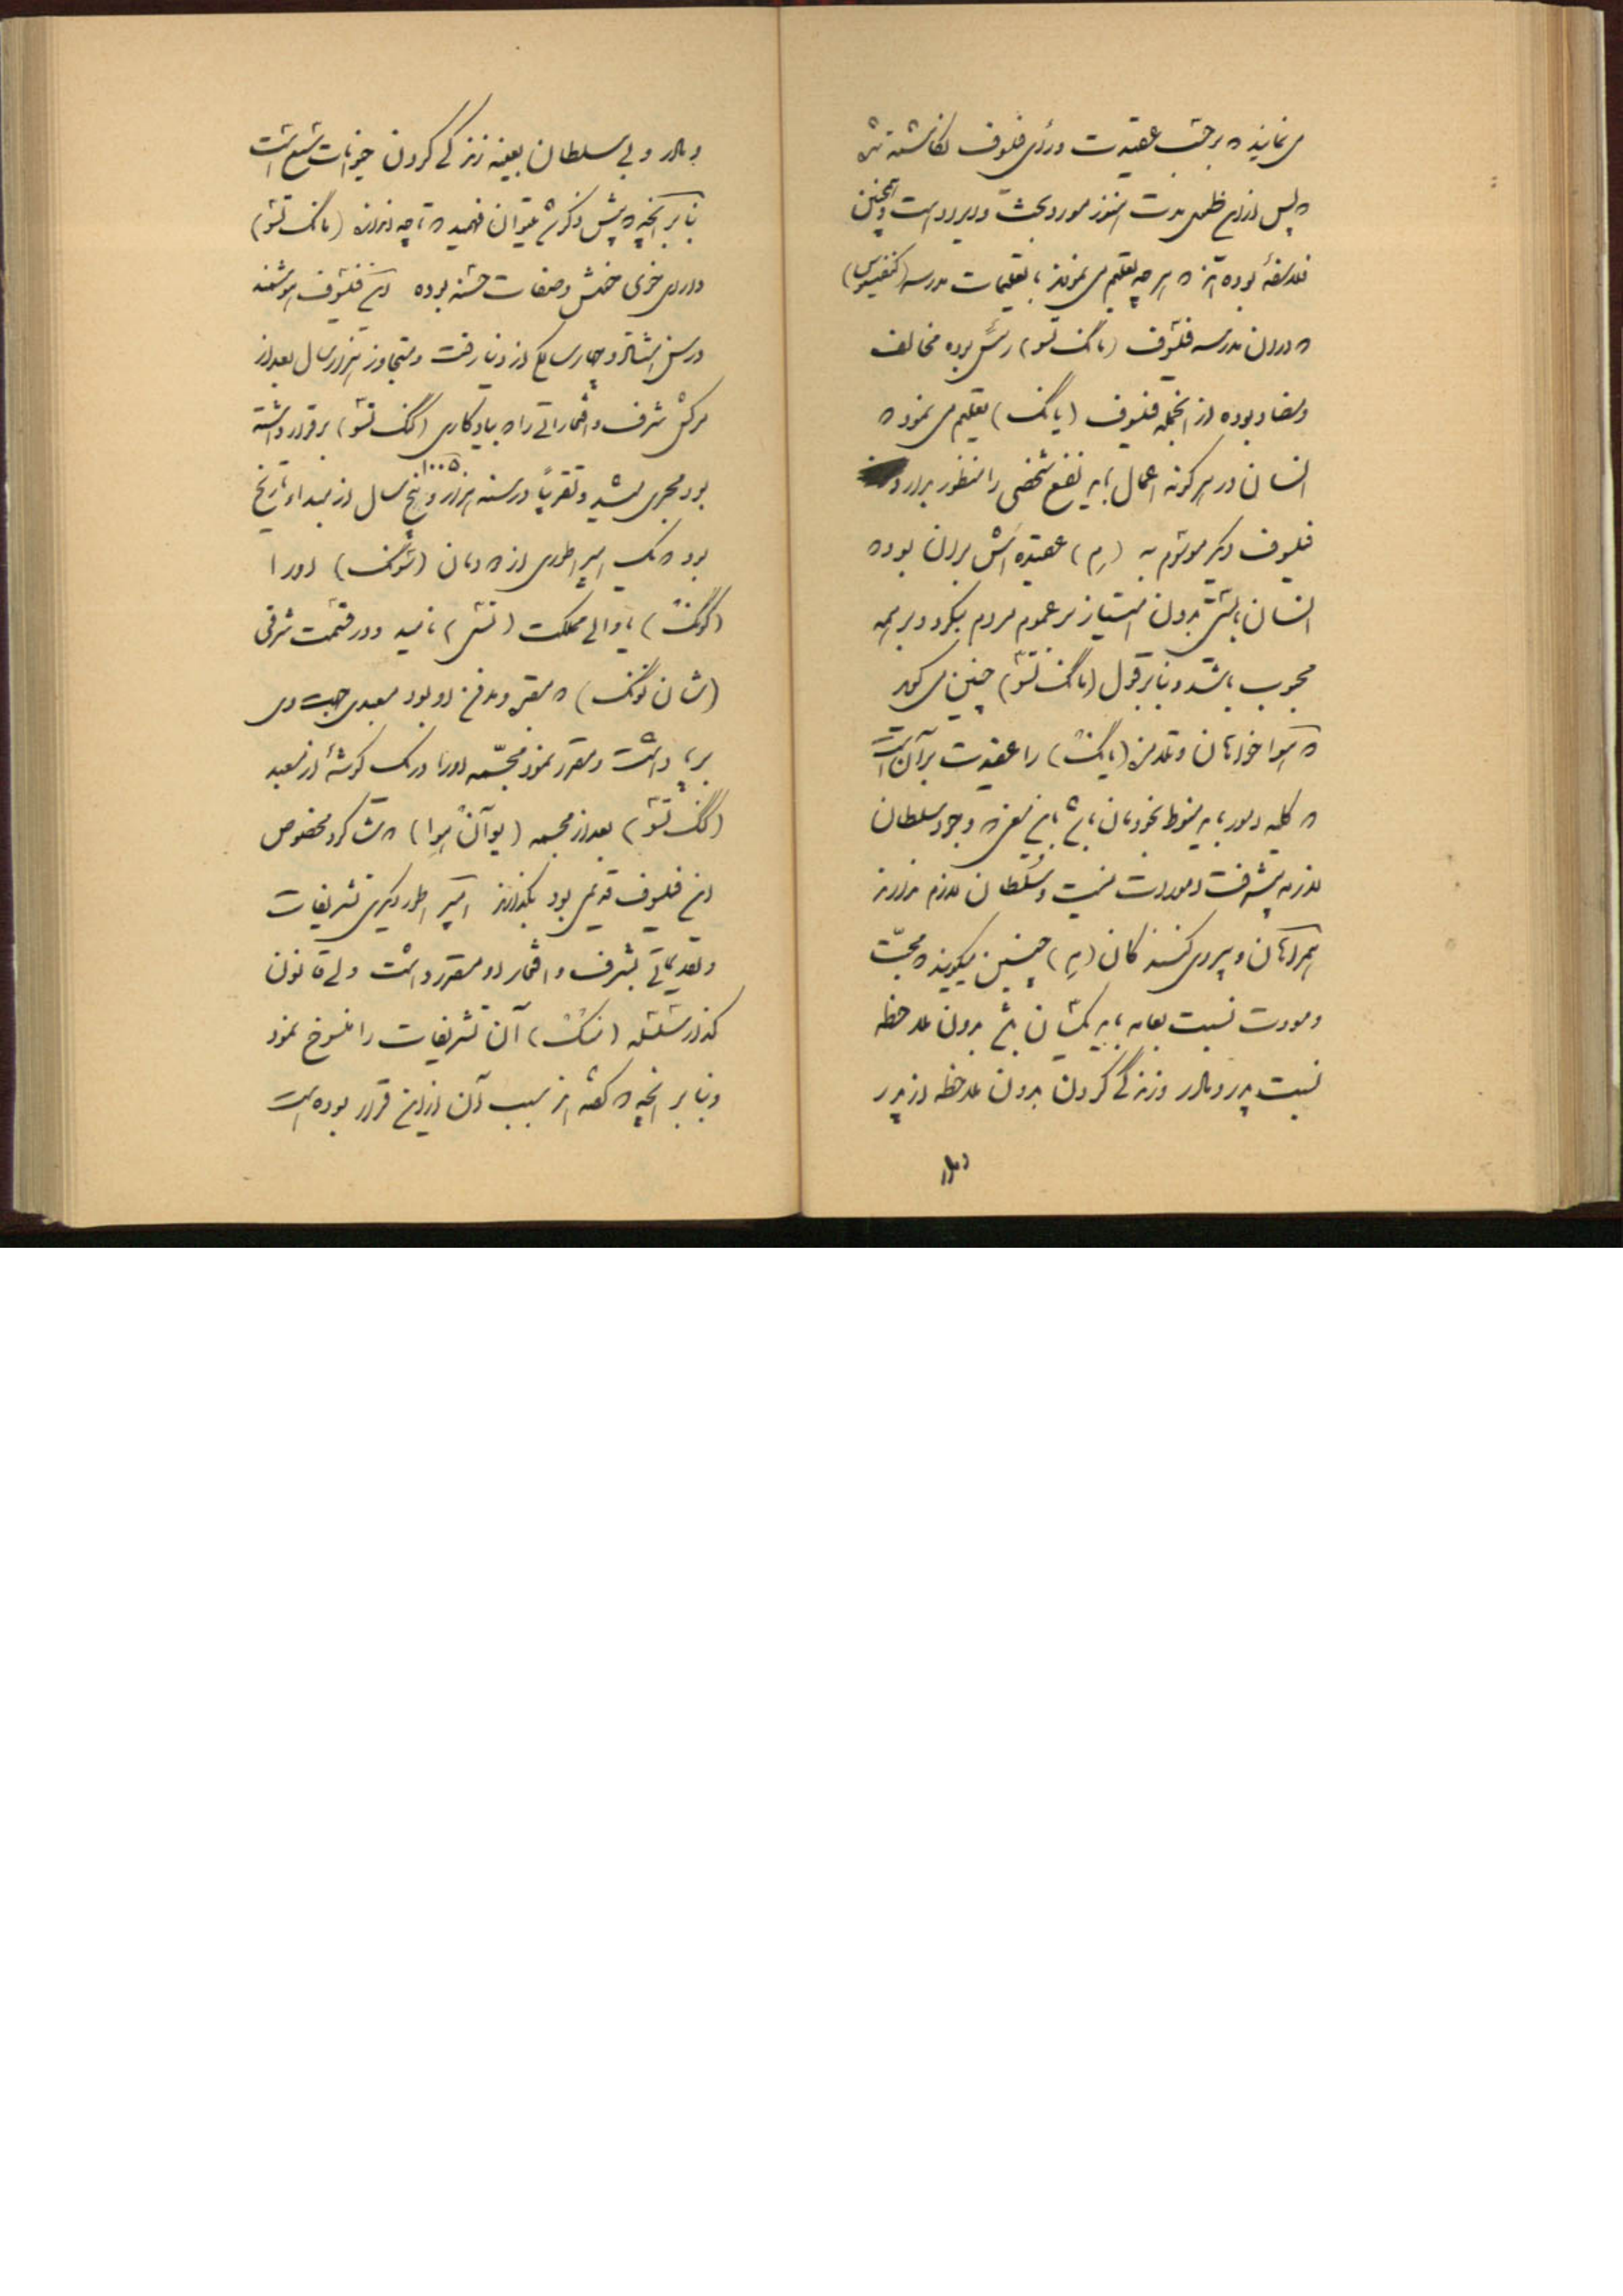 می‌نماید که برحسب عقیدت و رأی فلسوف نگاشته شده
که پس از این ظلمی مدت هنوز مورد بحث و ایراد است و همچنین
فلاسفهٔ بوده‌اند که هر چه تعلیم می‌نمودند با تعلیمات مدرسه (کنفسیوس)
که در آن مدرسه فلسوف (مانگ تسو) رئیس بوده مخالف
و متضاد بوده از آنجمله فیلسوف (یانگ) تعلیم می‌نمود که
انسان در هر گونه اعمال باید نفع شخصی را منظور بدارد
فیلسوف دیگر موسوم به (م) عقیده‌اش بر آن بود که
انسان بایستی بدون امتیاز بر عموم مردم بنگرد و بر همه
محبوب باشد و بنا بر قول (مانگ تسو) چنین می‌گوید
که هواخواهان و تلامذه (یانگ) را عقیدت بر آن است
که کلیه امور باید منوط بخودمان باشد باین معنی که وجود سلطان
لازمه پیشرفت امورات نیست و سلطان لازم ندارند
همراهان و پیروی کنندگان (م) چنین میگویند که محبت
و مودت نسبت بعامه باید یکسان باشد بدون ملاحظه
نسبت پدر و مادر و زندگی کردن بدون ملاحظه از پدر
و مادر و بی سلطان بعینه زندگی کردن حیوانات سبع است
بنا بر آنچه که پیش ذکر شد میتوان فهمید که تا چه اندازه (مانگ تسو)
دارای خوی خوش و صفات حسنه بوده این فیلسوف هوشمند
در سن هشتاد و چهار سالگی از دنیا رفت و متجاوز هزار سال بعد از
مرگش شرف و افتخاراتی را که بیادگاری (مانگ تسو) برقرار داشته
بود مجری میشد و تقریباً در سنه هزار و پنج ۱۰۰۵ سال از مبداء تاریخ
بود که یک امپراطوری از دودمان (سونگ) او را
(گونگ) یا والی مملکت (تسی) نامید و در قسمت شرقی
(شان تونگ) که مقر و مدفن او بود معبدی جهت وی
برپا داشت و مقرر نمود مجسمه او را در یک گوشهٔ از معبد
(مانگ تسو) بعد از مجسمه (یوآن هوا) که شاگرد مخصوص
این فیلسوف قدیمی بود بگذارند امپراطور دیگری تشریفات
و تقدیماتی بشرف و افتخار او مقرر داشت ولی قانون
گذار سلسله (منگ) آن تشریفات را منسوخ نمود
و بنا بر آنچه که گفته‌اند سبب آن از این قرار بوده است